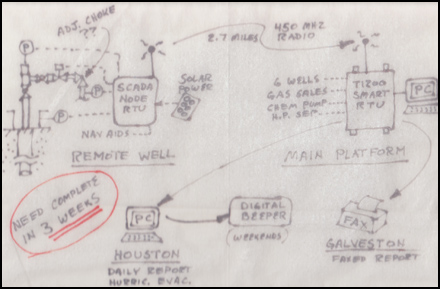 ADJ. CHOKE
??
P
P
P
SCADA
NODE
RTU
NAV AIDS
SOLAR
POWER
2.7 MILES
450 MHZ
RADIO
6 WELLS
GAS SALES
CHEM PUMP
H.P. SEP.
T1200
SMART
RTU
PC
REMOTE WELL
MAIN PLATFORM
NEED COMPLETE
IN 3 WEEKS
PC
HOUSTON
DAILY REPORT
HURRIC. EVAC.
DIGITAL
BEEPER
(WEEKENDS)
FAX
GALVESTON
FAXED REPORT